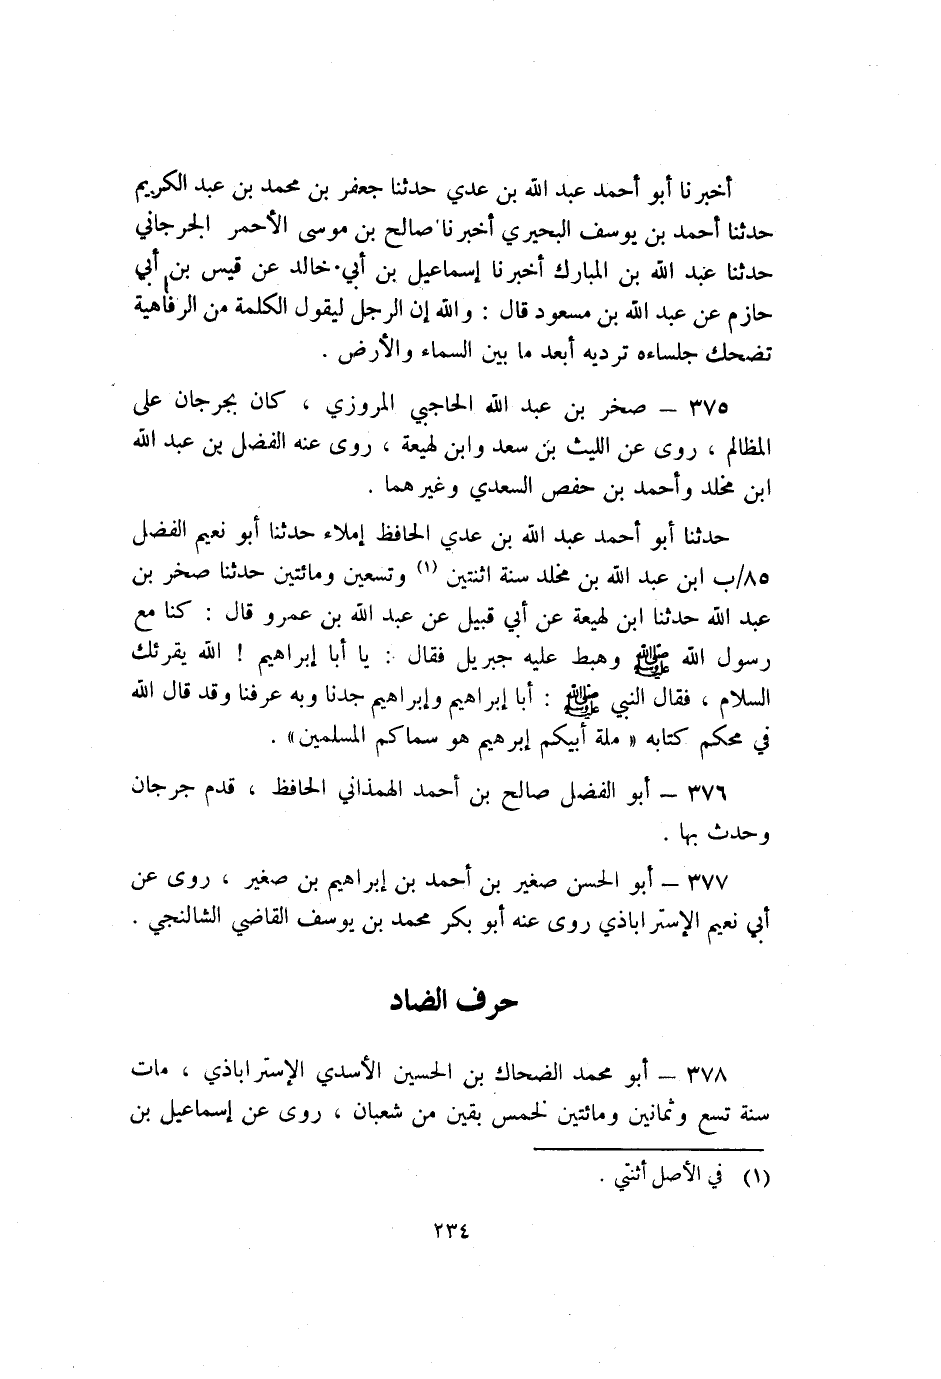 أخبرنا أبو أحمد عبد الله بن عدي حدثنا جعفر بن محمد بن عبد الكريم
حدثنا أحمد بن يوسف البحيري أخبرنا صالح بن موسى الأحمر الجرجاني
حدثنا عبد الله بن المبارك أخبرنا إسماعيل بن أبي خالد عن قيس بن أبي
حازم عن عبد الله بن مسعود قال : والله إن الرجل ليقول الكلمة من الرفاهية
تضحك جلساءه ترديه أبعد ما بين السماء والأرض .
٣٧٥ – صخر بن عبد الله الحاجبي المروزي ، كان بجرجان على
المظالم ، روى عن الليث بن سعد وابن لهيعة ، روى عنه الفضل بن عبد الله
ابن مخلد وأحمد بن حفص السعدي وغيرهما .
حدثنا أبو أحمد عبد الله بن عدي الحافظ إملاء حدثنا أبو نعيم الفضل
٨٥/ب ابن عبد الله بن مخلد سنة اثنتين (١) وتسعين ومائتين حدثنا صخر بن
عبد الله حدثنا ابن لهيعة عن أبي قبيل عن عبد الله بن عمرو قال : كنا مع
رسول الله ﷺ وهبط عليه جبريل فقال : يا أبا إبراهيم ! الله يقرئك
السلام ، فقال النبي ﷺ : أبا إبراهيم وإبراهيم جدنا وبه عرفنا وقد قال الله
في محكم كتابه « ملة أبيكم إبرهيم هو سماكم المسلمين» .
٣٧٦ – أبو الفضل صالح بن أحمد الهمذاني الحافظ ، قدم جرجان
وحدث بها .
٣٧٧ – أبو الحسن صغير بن أحمد بن إبراهيم بن صغير ، روى عن
أبي نعيم الإستراباذي روى عنه أبو بكر محمد بن يوسف القاضي الشالنجي .
حرف الضاد
٣٧٨ – أبو محمد الضحاك بن الحسين الأسدي الإستراباذي ، مات
سنة تسع وثمانين ومائتين لخمس بقين من شعبان ، روى عن إسماعيل بن
(١) في الأصل أثنتي .
٢٣٤